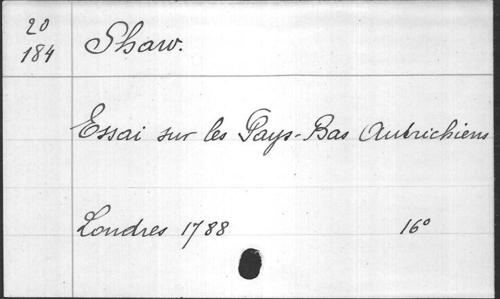 20
184
Shaw.
Essai sur les Pays-Bas Autrichiens
Londres 1788 16°